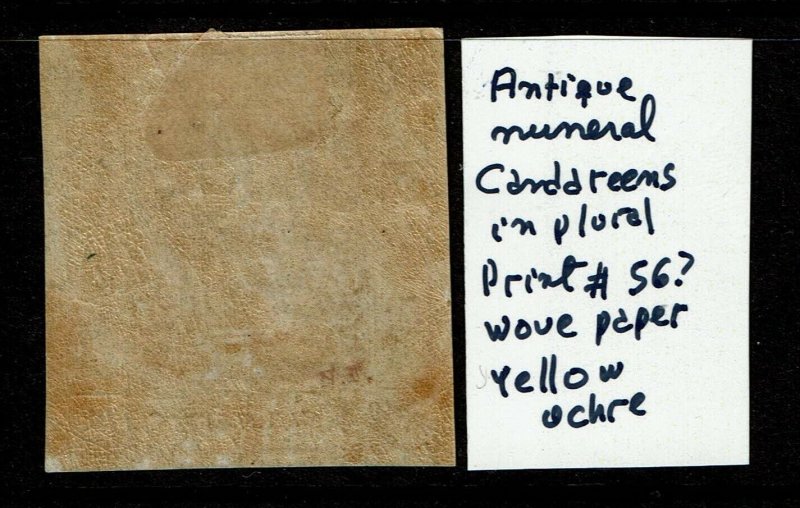 Antique
numeral
Candareens
in plural
Print # 56?
wove paper
yellow
ochre